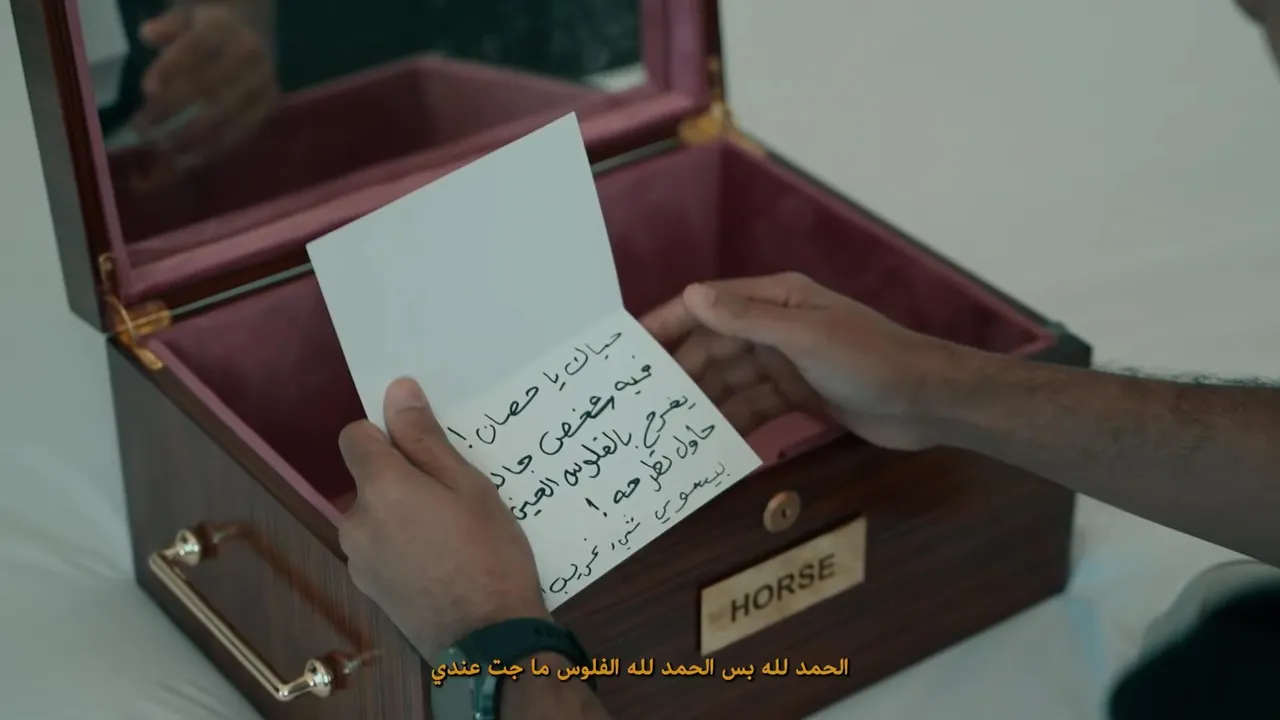 حياك يا حصان!
فيه شخص
يفرح بالفلوس
حاول تطرحه!
بيسوي شيء غريب!
HORSE
الحمد لله بس الحمد لله الفلوس ما جت عندي